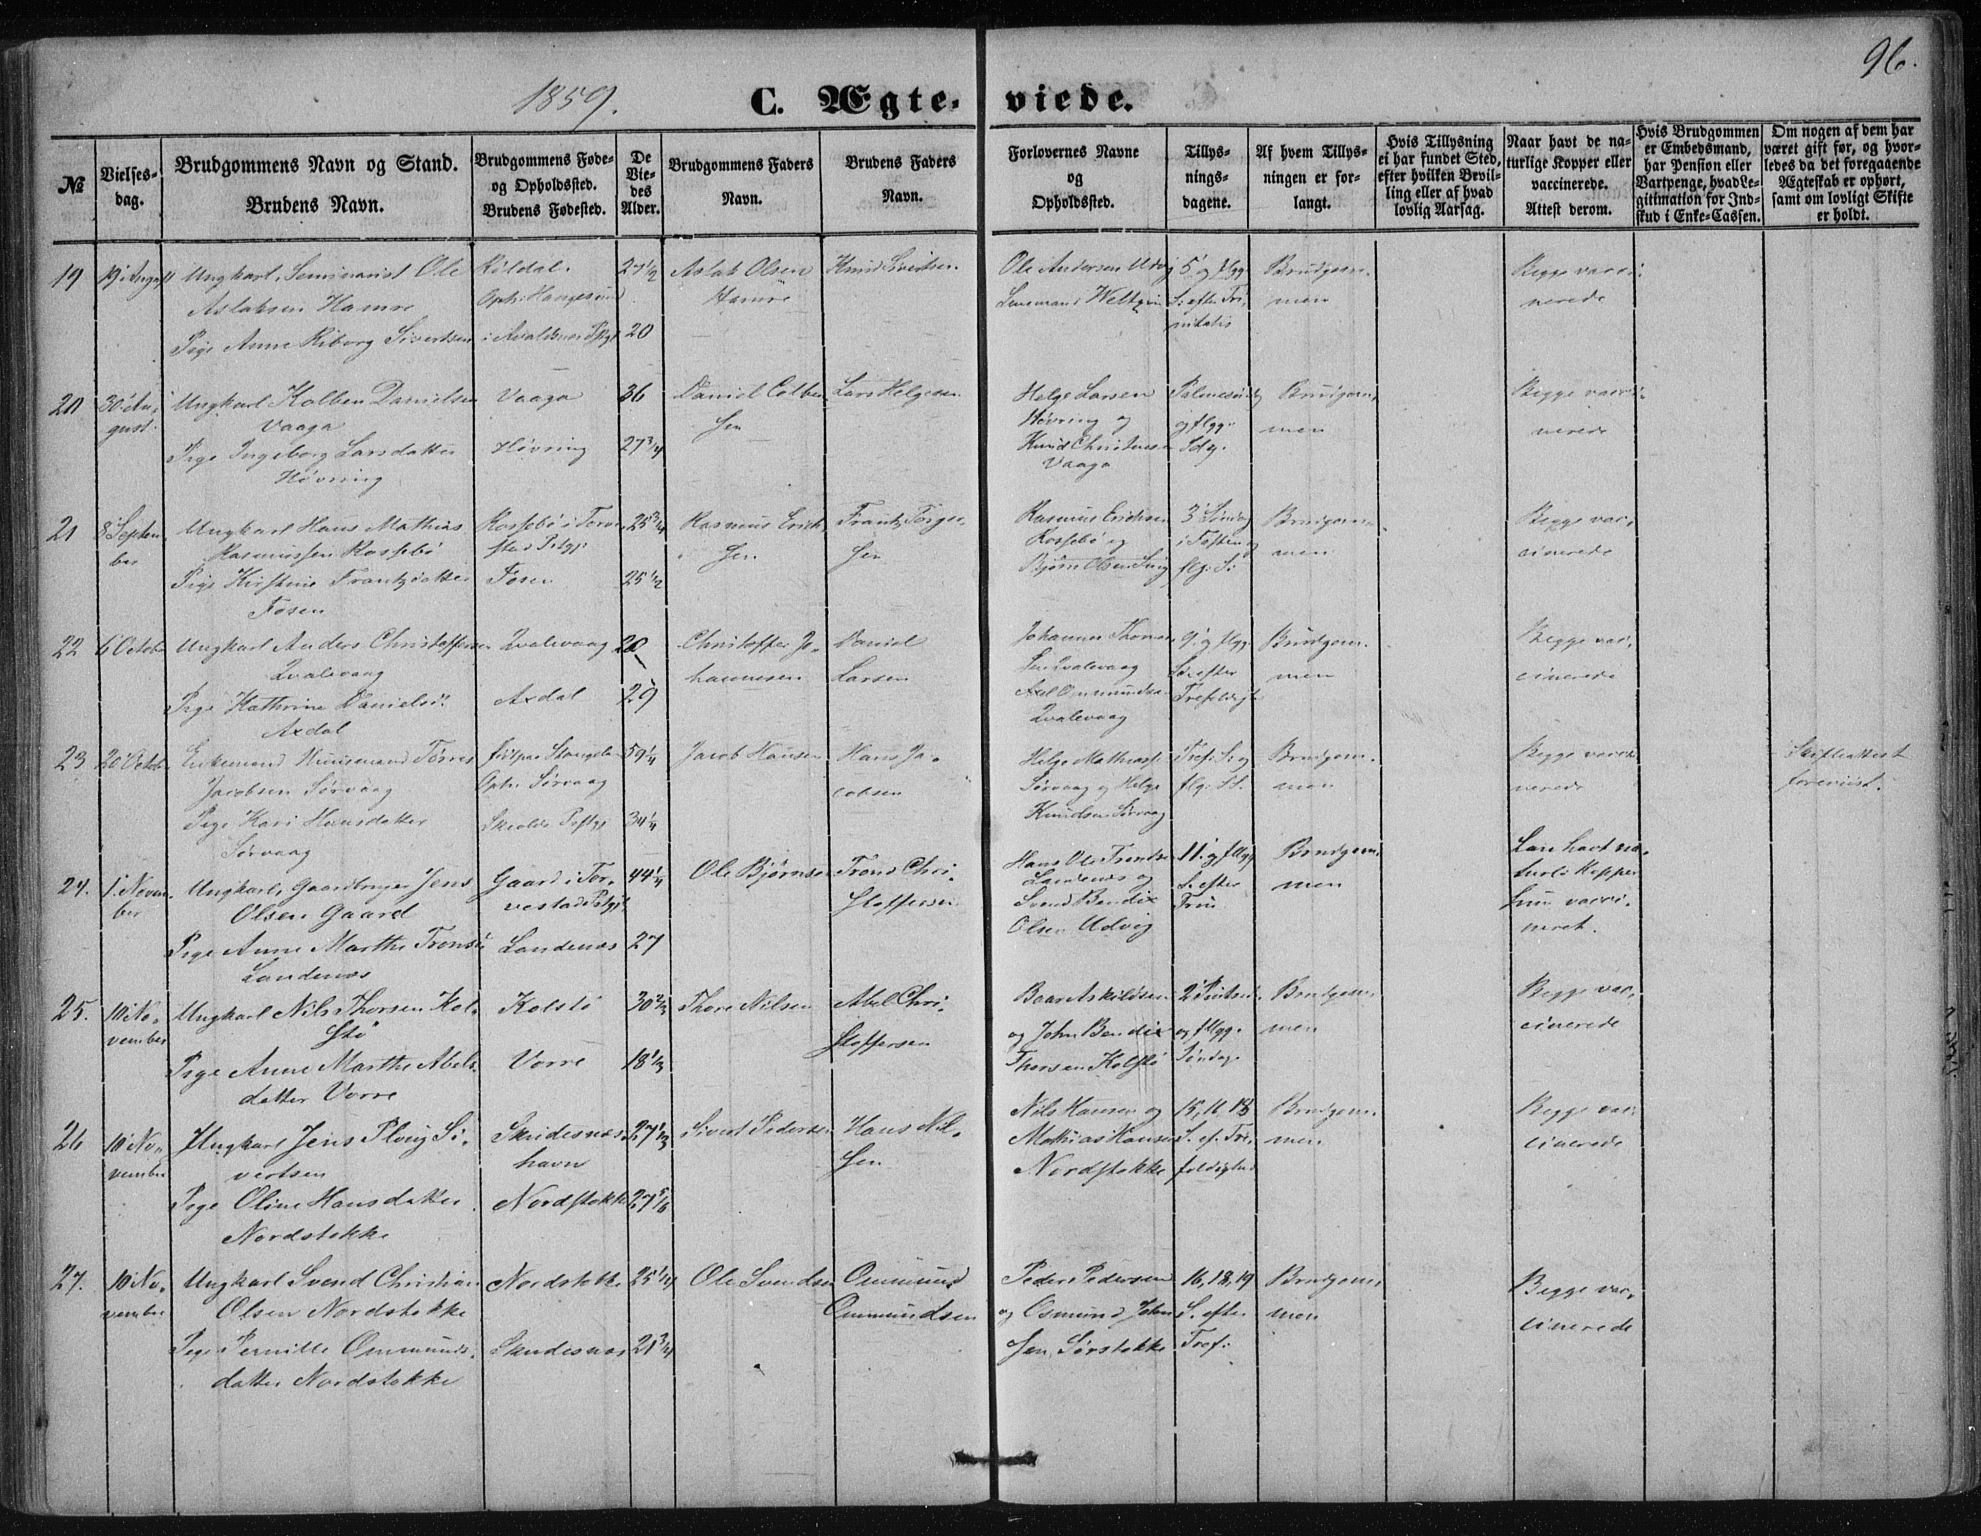 96.
1859.
C. Ægteviede.
№
Vielsesdag.
Brudgommens Navn og Stand.
Brudens Navn.
Brudgommens Føde-
og Opholdssted.
Brudens Fødested.
De
Vie-
des
Alder.
Brudgommens Faders
Navn.
Brudens Faders
Navn.
Forlovernes Navne
og
Opholdssted.
Tillys-
nings-
dagene.
Af hvem Tillys-
ningen er for-
langt.
Hvis Tillysning
ei har fundet Sted,
efter hvilken Bevil-
ling eller af hvad
lovlig Aarsag.
Naar havt de na-
turlige Kopper eller
vaccinerede.
Attest derom.
Hvis Brudgommen
er Embedsmand,
har Pension eller
Vartpenge, hvad Le-
gitimation for Ind-
skud i Enke-Cassen.
Om nogen af dem har
været gift før, og hvor-
ledes da det foregaaende
Ægteskab er ophørt,
samt om lovligt Skifte
er holdt.
19
Ungkarl, Seminarist Ole
Aslaksen Hamre
Pige Anne Riborg Sivertsen
Röldal.
27 1/2
20
Aslak Olsen
Hamre
Knud Sivertsen
Ole Andersen Udvig
5' og flgg.
S: efter Tri-
nitatis
Brudgom-
men
Begge vacci-
nerede
20
30' Au-
gust.
Ungkarl Kolben Danielsen
Vaaga
Pige Ingeborg Larsdatter
Høvring
Vaaga
Høvring
36
27 3/4
Daniel Colben
sen
Lars Helgesen
Helge Larsen
Høvring og
Knud Christensen
Vaaga
og flgg.
Brudgom-
men
Begge vacci-
nerede
21
8' Septem-
ber
Ungkarl Hans Mathias
Rasmussen Rossebö
Pige Kirstine Frantzdatter
Fosen
Rossebö i Torve-
stad Pstgj.
Fosen
25 3/4
25 1/2
Rasmus Erich-
sen
Frantz Törger-
sen
Rasmus Erichsen
Rossebö og
Bjørn Olsen
3' Søndag
i Fasten og
flg. S:
Brudgom-
men
Begge vac-
cinerede
22
6' Octob.
Ungkarl Anders Christoffersen
Qvalevaag
Pige Kathrine Danielsd.
Axdal
Qvalevaag
Axdal
28
29
Christoffer Jo-
hannesen
Daniel
Larsen
Johannes Thomas-
sen Qvalevaag
Axel Ommundsen
Qvalevaag
9' og flgg.
Sø: efter
Brudgom-
men
Begge vac-
cinerede
23
20' Octob.
Enkemand Huusmand Törres
Jacobsen Sørvaag
Pige Kari Hansdatter
Sørvaag
Oph: Sørvaag
59 1/4
34 1/4
Jacob Hansen
Hans Ja-
cobsen
Helge Mathias.
Sørvaag og Helge
Knudsen Sørvaag
Tref. S: og
flg. S.
Brudgom-
men
Begge vacci-
nerede
Skifteattest
foreviist.
24.
1' Novem-
ber
Ungkarl, Gaardbruger Jens
Olsen Gaard
Pige Anne Marthe Tronsd.
Landenæs
Gaard i Tor-
vestad Pstgj.
Landenæs
44 1/4
27
Ole Bjørnsen
Trond Chri-
stoffersen
Hans Ole Trondsen
Landenæs og
Svend Bendix
Olsen Udvig
11' og flgg.
S. efter
Brudgom-
men
Han havt na-
turl: Kopper
hun vacci-
neret.
25.
10' No-
vember
Ungkarl Nils Thorsen Kol-
stö
Pige Anne Marthe Abels-
datter Vorre
Kolstö
Vorre
30 2/3
18 1/3
Thore Nilsen
Abel Chri-
stoffersen
Baar Askildsen
og John Bendix
Thorsen Kolstö
og flgg.
Søndage
Brudgom-
men
Begge vac-
cinerede
26
10' No-
vember
Ungkarl Jens Ploug Si-
vertsen
Pige Oline Hansdatter
Nordstokke
Skudesnæs-
havn
Nordstokke
27 1/3
27 5/6
Sivert Pedersen
Hans Nil-
sen
Nils Hansen og
Mathias Hansen
Nordstokke
S. ef. Tre-
foldighed
Brudgom-
men
Begge vac-
cinerede
27.
10' No-
vember
Ungkarl Svend Christian
Olsen Nordstokke
Pige Pernille Ommunds-
datter Nordstokke
Nordstokke
Skudesnæs
25 1/4
21 3/4
Ole Svendsen
Ommund
Ommundsen
Peder Pedersen
og Osmund John-
sen Sørstokke
16, 18, 19
S. efter
Tref:
Brudgom-
men
Begge vac-
cinerede